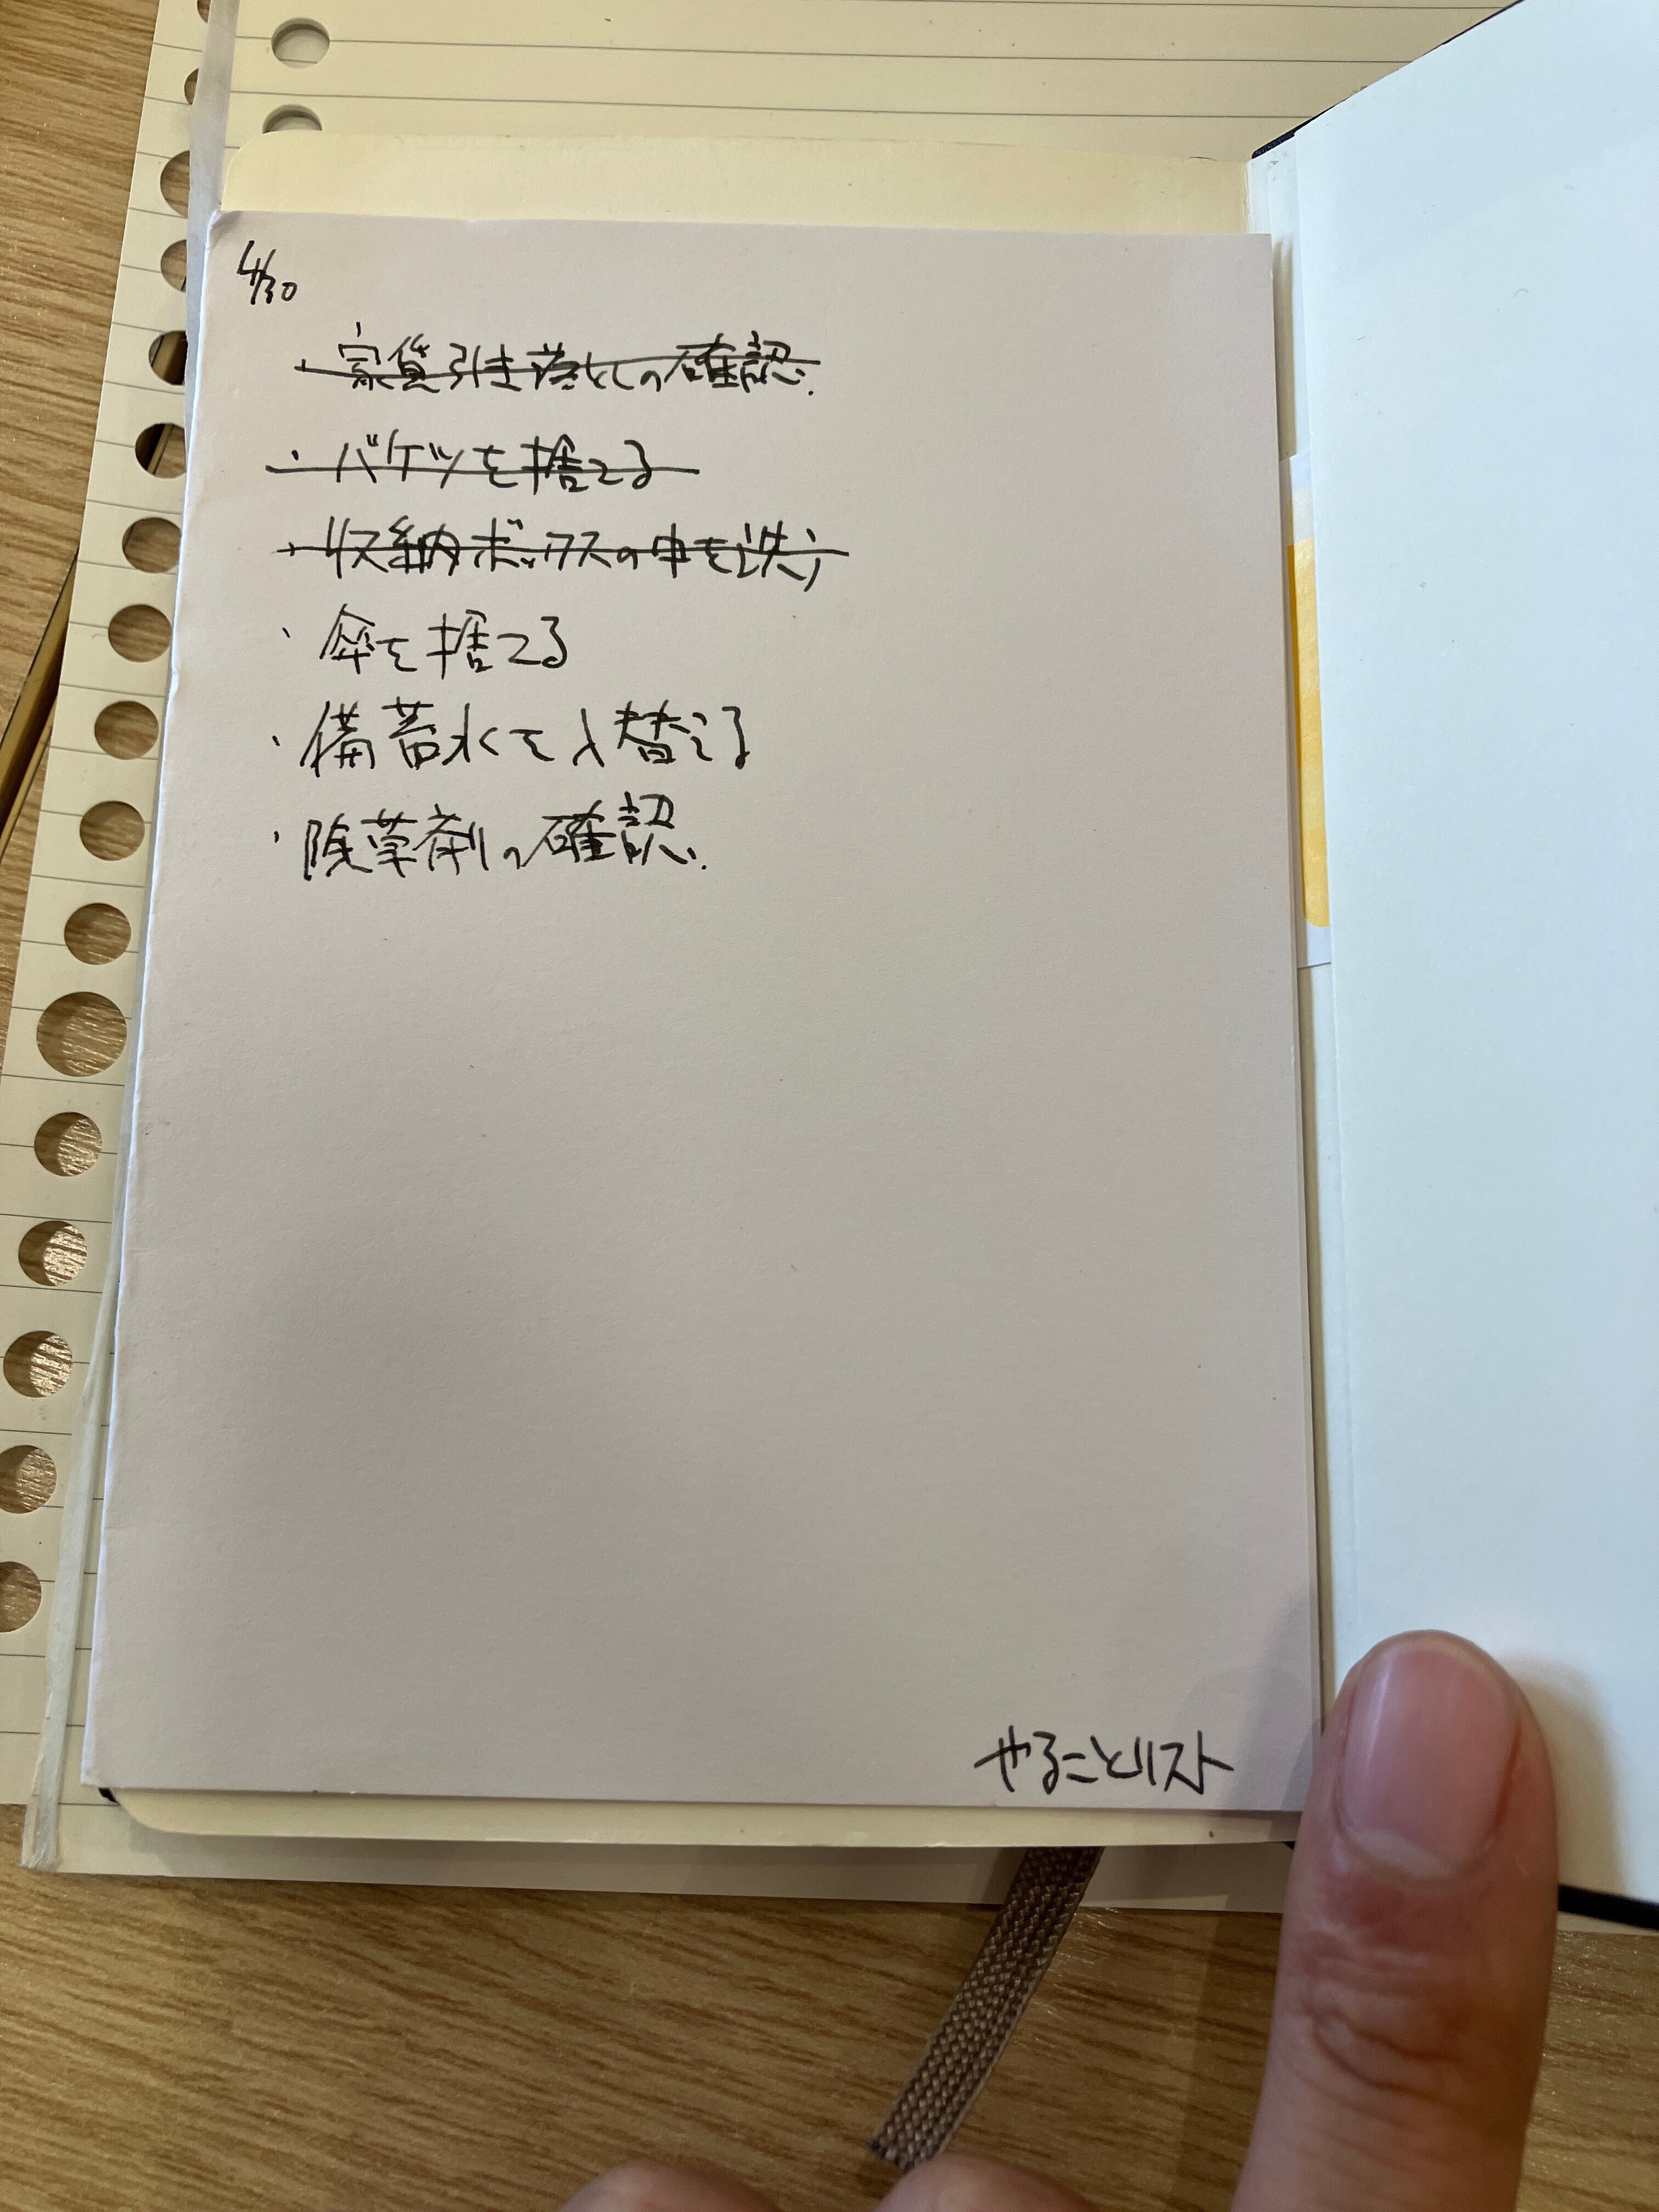 4/30
・家賃引き落としの確認.
・バケツを捨てる
・収納ボックスの中を洗う
・傘を捨てる
・備蓄水を入替える
・除草剤の確認.
やることリスト